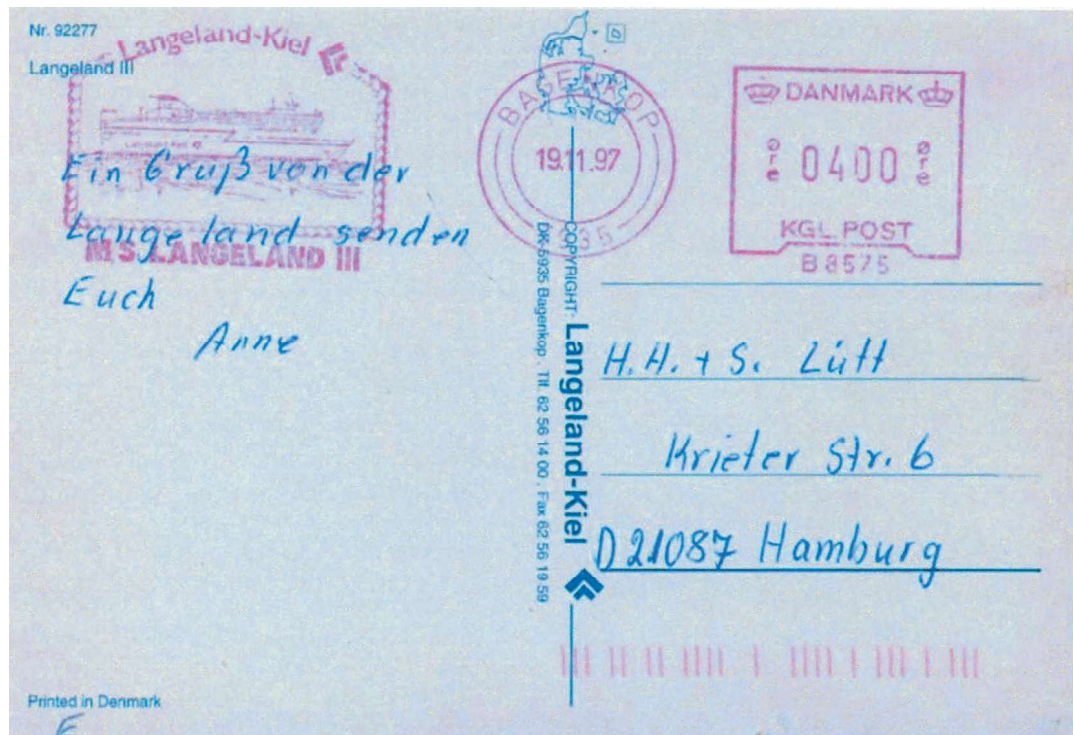 Nr. 92277
Langeland III
Langeland-Kiel
M.S. LANGELAND III
Ein Gruß von der
Langeland senden
Euch
Anne
BAGENKOP
19.11.97
5935
DANMARK
øre 0400 øre
KGL. POST
B 8575
COPYRIGHT: Langeland-Kiel
DK-5935 Bagenkop . Tlf. 62 56 14 00 . Fax 62 56 19 59
H.H. + S. Lütt
Krieter Str. 6
D 21087 Hamburg
Printed in Denmark